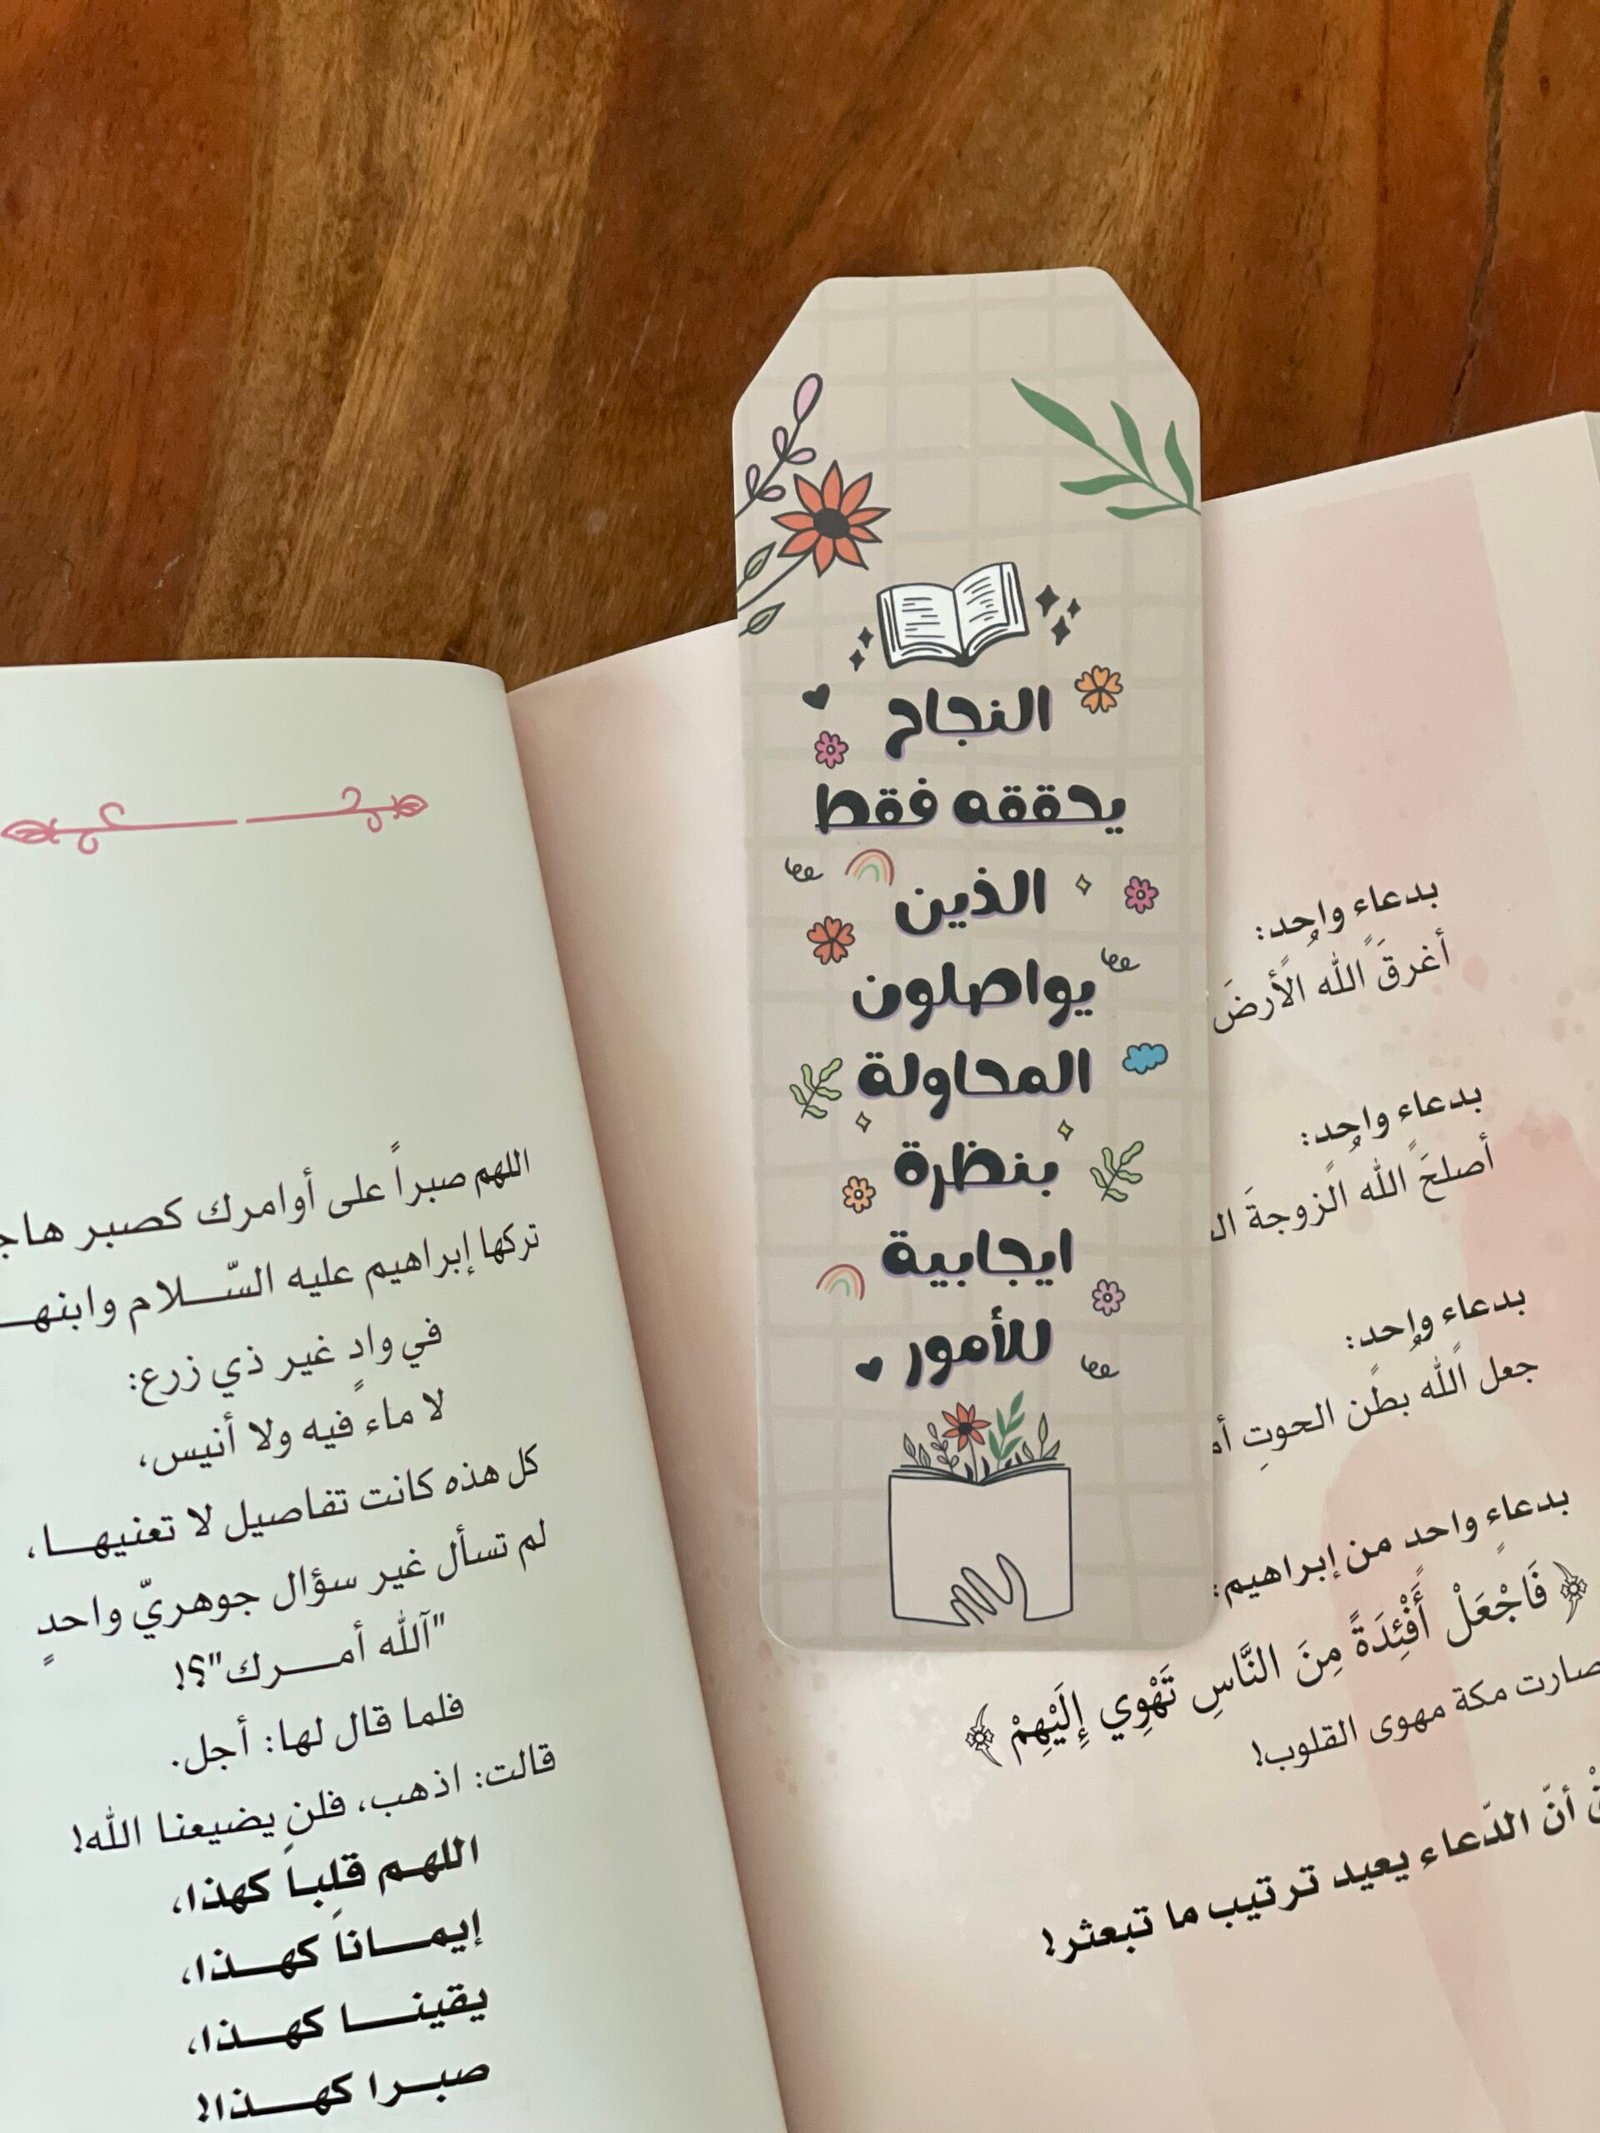 النجاح
يحققه فقط
الذين
يواصلون
المحاولة
بنظرة
ايجابية
للأمور
بدعاءٍ واحدٍ:
أغرقَ الله الأرضَ
بدعاءٍ واحدٍ:
أصلحَ الله الزوجةَ
بدعاءٍ واحدٍ:
جعل الله بطن الحوتِ
بدعاءٍ واحدٍ من إبراهيم:
﴿ فَاجْعَلْ أَفْئِدَةً مِنَ النَّاسِ تَهْوِي إِلَيْهِمْ ﴾
صارت مكة مهوى القلوب!
أنّ الدّعاء يعيد ترتيب ما تبعثر!
اللهم صبراً على أوامرك كصبر
تركها إبراهيم عليه السّلام وابنهـ
في وادٍ غير ذي زرع:
لا ماء فيه ولا أنيس،
كل هذه كانت تفاصيل لا تعنيها،
لم تسأل غير سؤال جوهريّ واحدٍ
"آلله أمرك"؟!
فلما قال لها: أجل.
قالت: اذهب، فلن يضيعنا الله!
اللهم قلباً كهذا،
إيماناً كهذا،
يقينا كهذا،
صبرا كهذا!